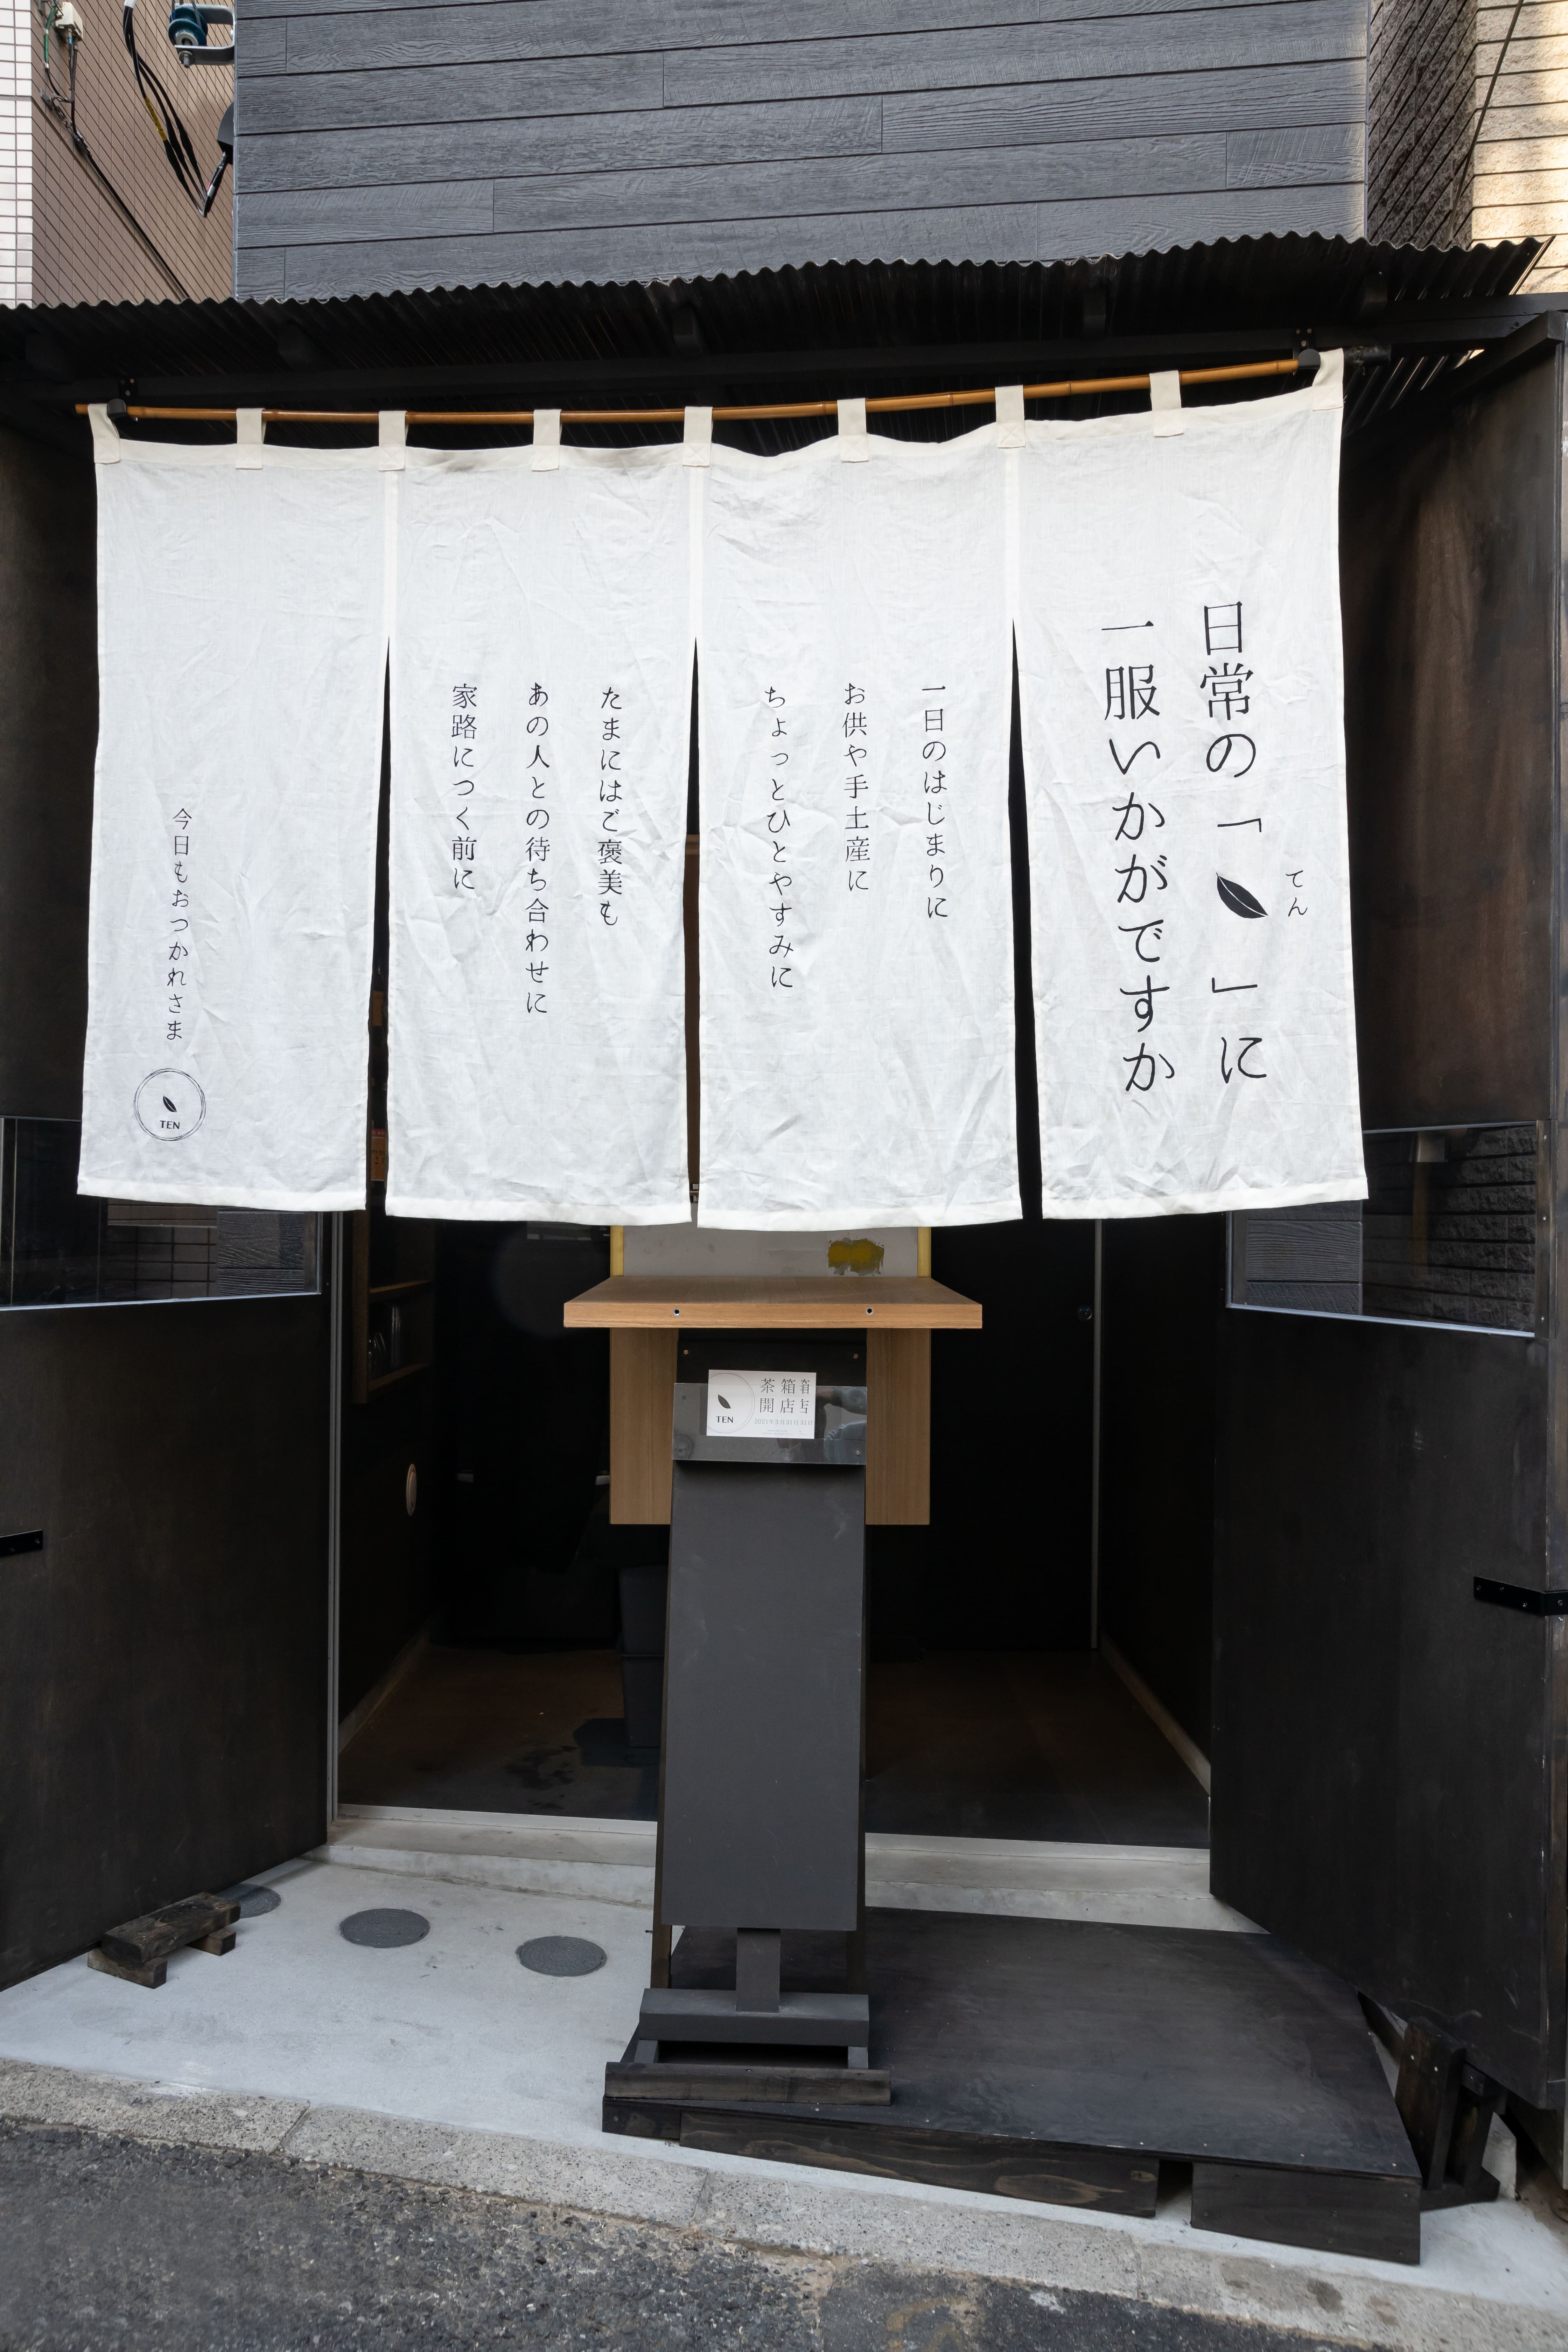 てん
日常の「 」に
一服いかがですか
一日のはじまりに
お供や手土産に
ちょっとひとやすみに
たまにはご褒美も
あの人との待ち合わせに
家路につく前に
今日もおつかれさま
TEN
茶箱
開店
TEN